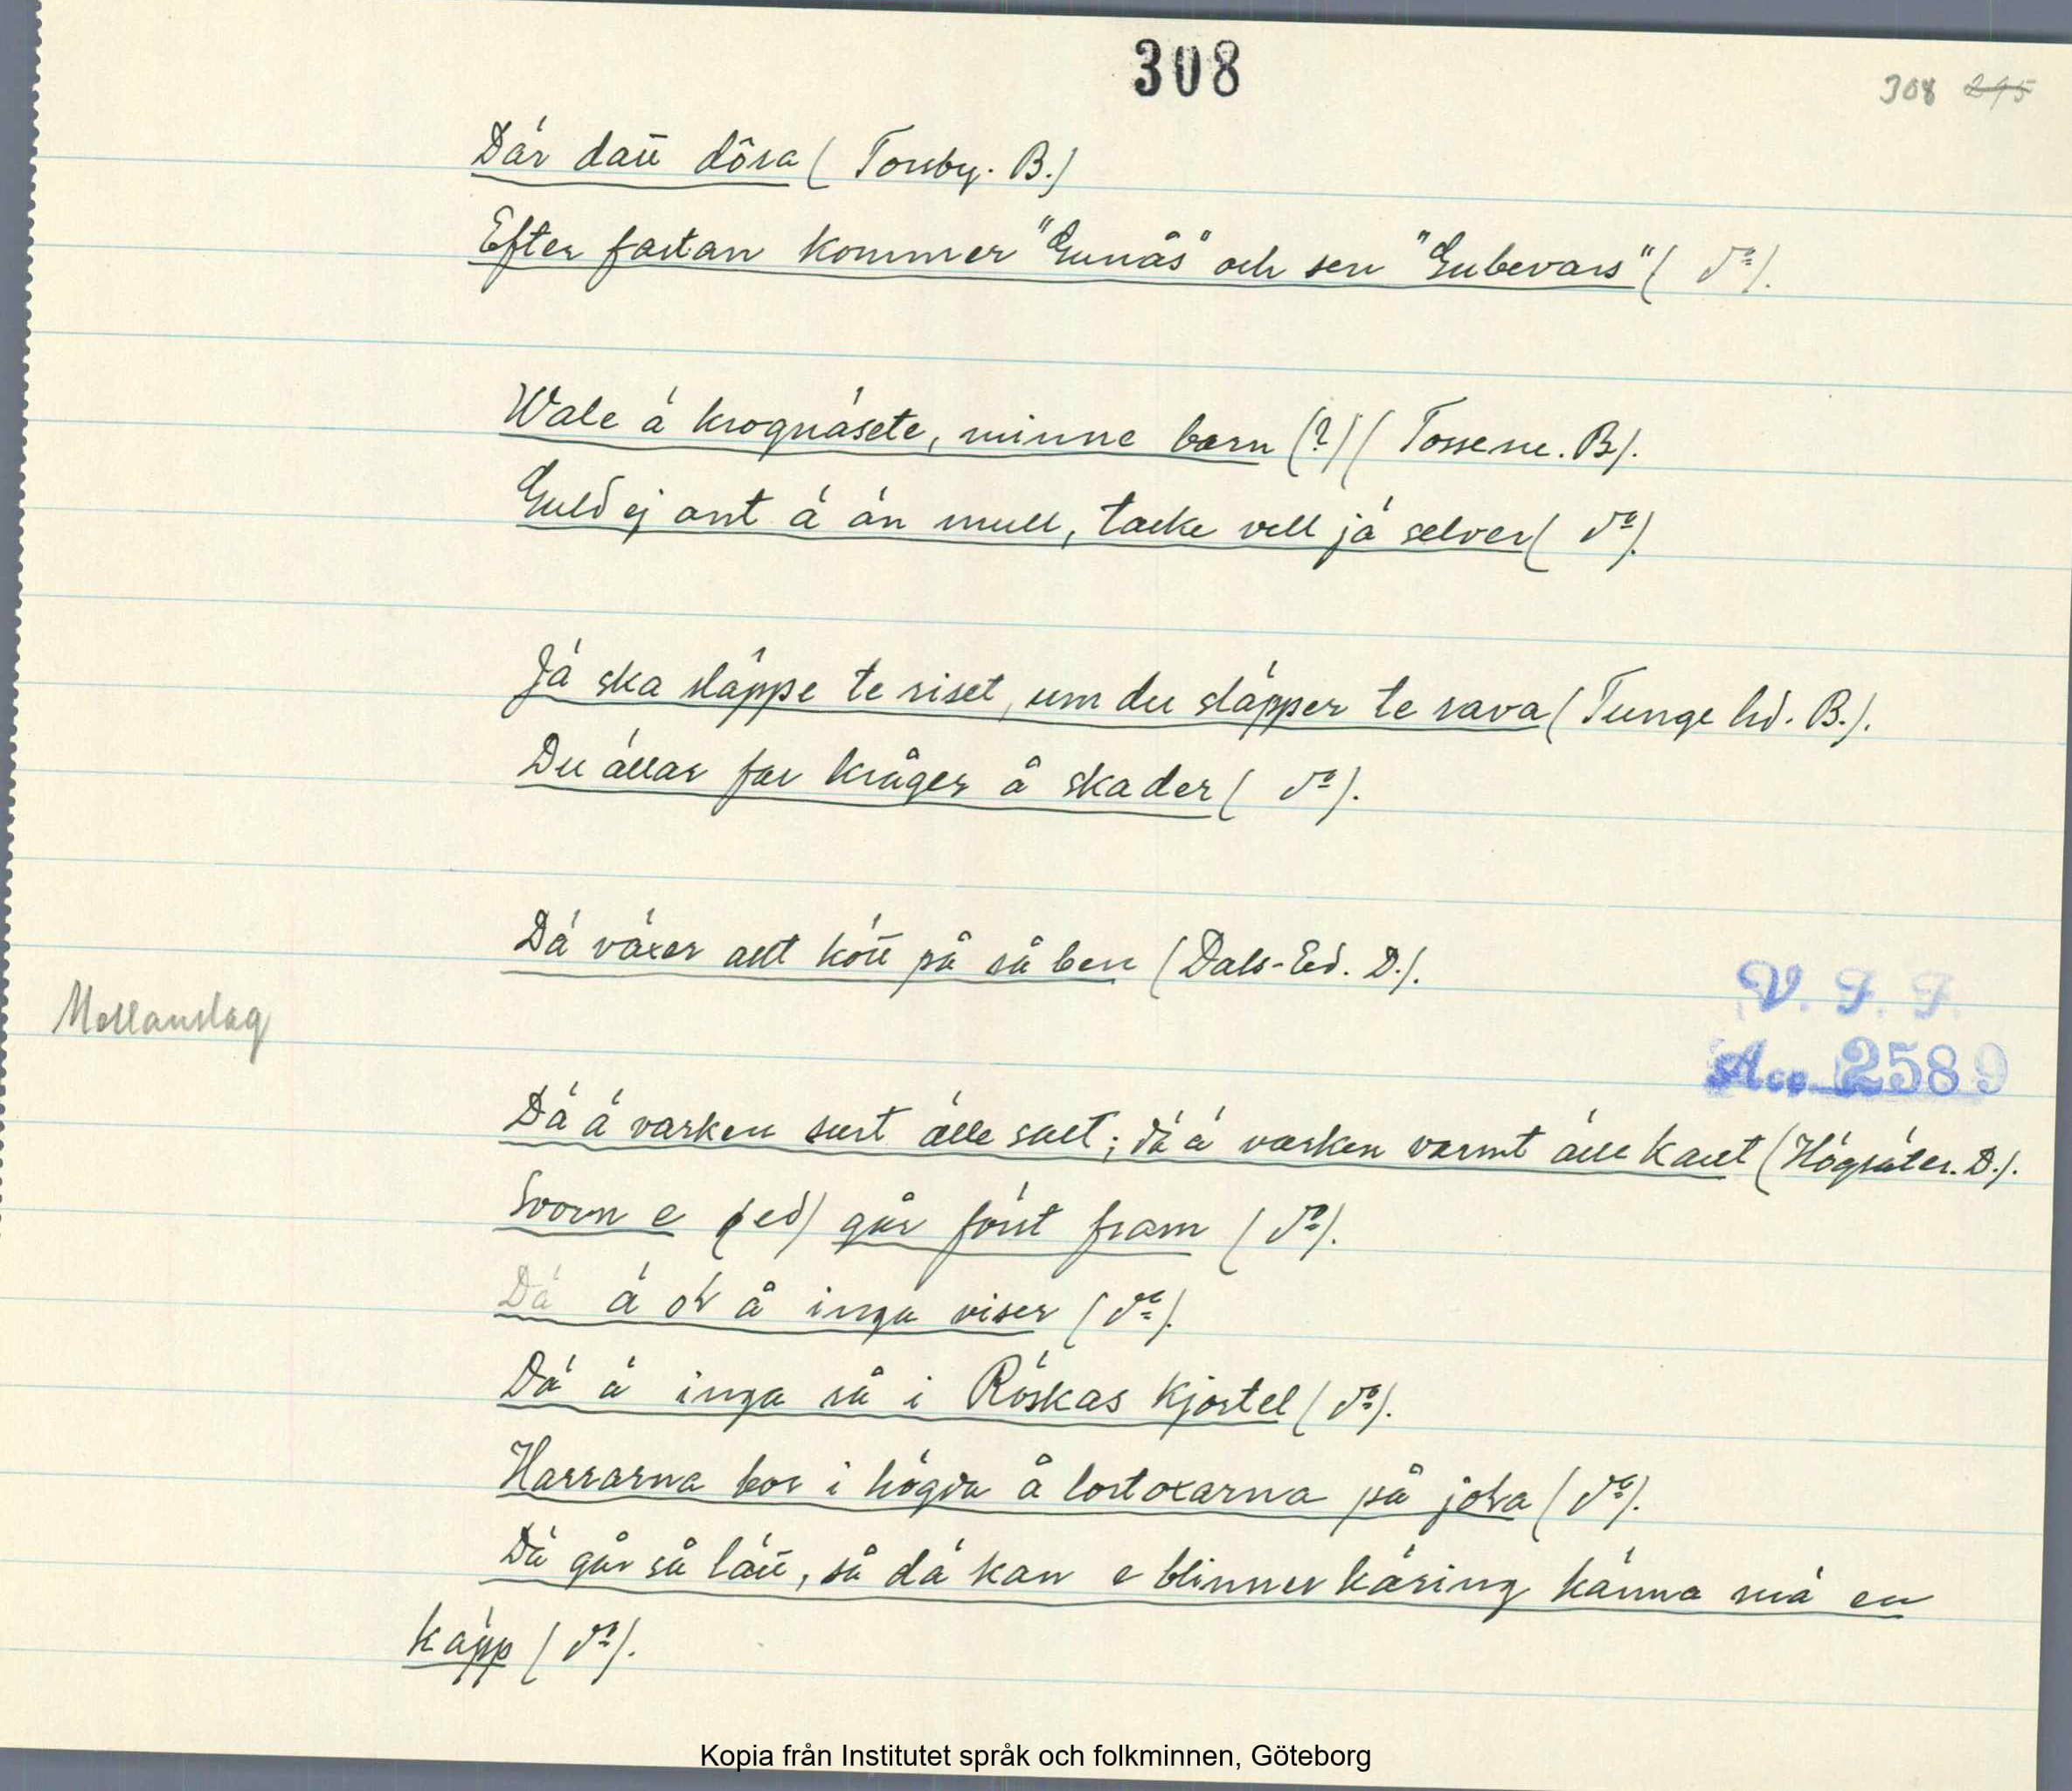 308
308 295
Där datt dôra (Torsby. B.)
Efter fastan kommer "Gunås" och sen "Gubevars" (do).
Wale ä krognäsete, minne barn (?) (Tossene. B).
Guld ej ant ä än mull, tacke vell jä selver (do).
Jä ska släppe te riset, um du släpper te rava (Tunge hd. B.).
Du ällar får kråger å skader (do).
Dä växer allt kött på så ben (Dals-Ed. D.).
Mellanslag
V. F. F.
Acc. 2589
Dä ä varken surt älle salt; dä ä varken varmt älle kallt (Högsäter. D.).
Svorn e (ed) går först fram (do).
Dä ä ol å inga viser (do).
Dä ä inga rå i Röskas kjortel (do).
Harrarna bor i högda å lortoxarna på jola (do).
Dä går så lätt, så dä kan e blinner käring känna mä en
käpp (do).
Kopia från Institutet språk och folkminnen, Göteborg